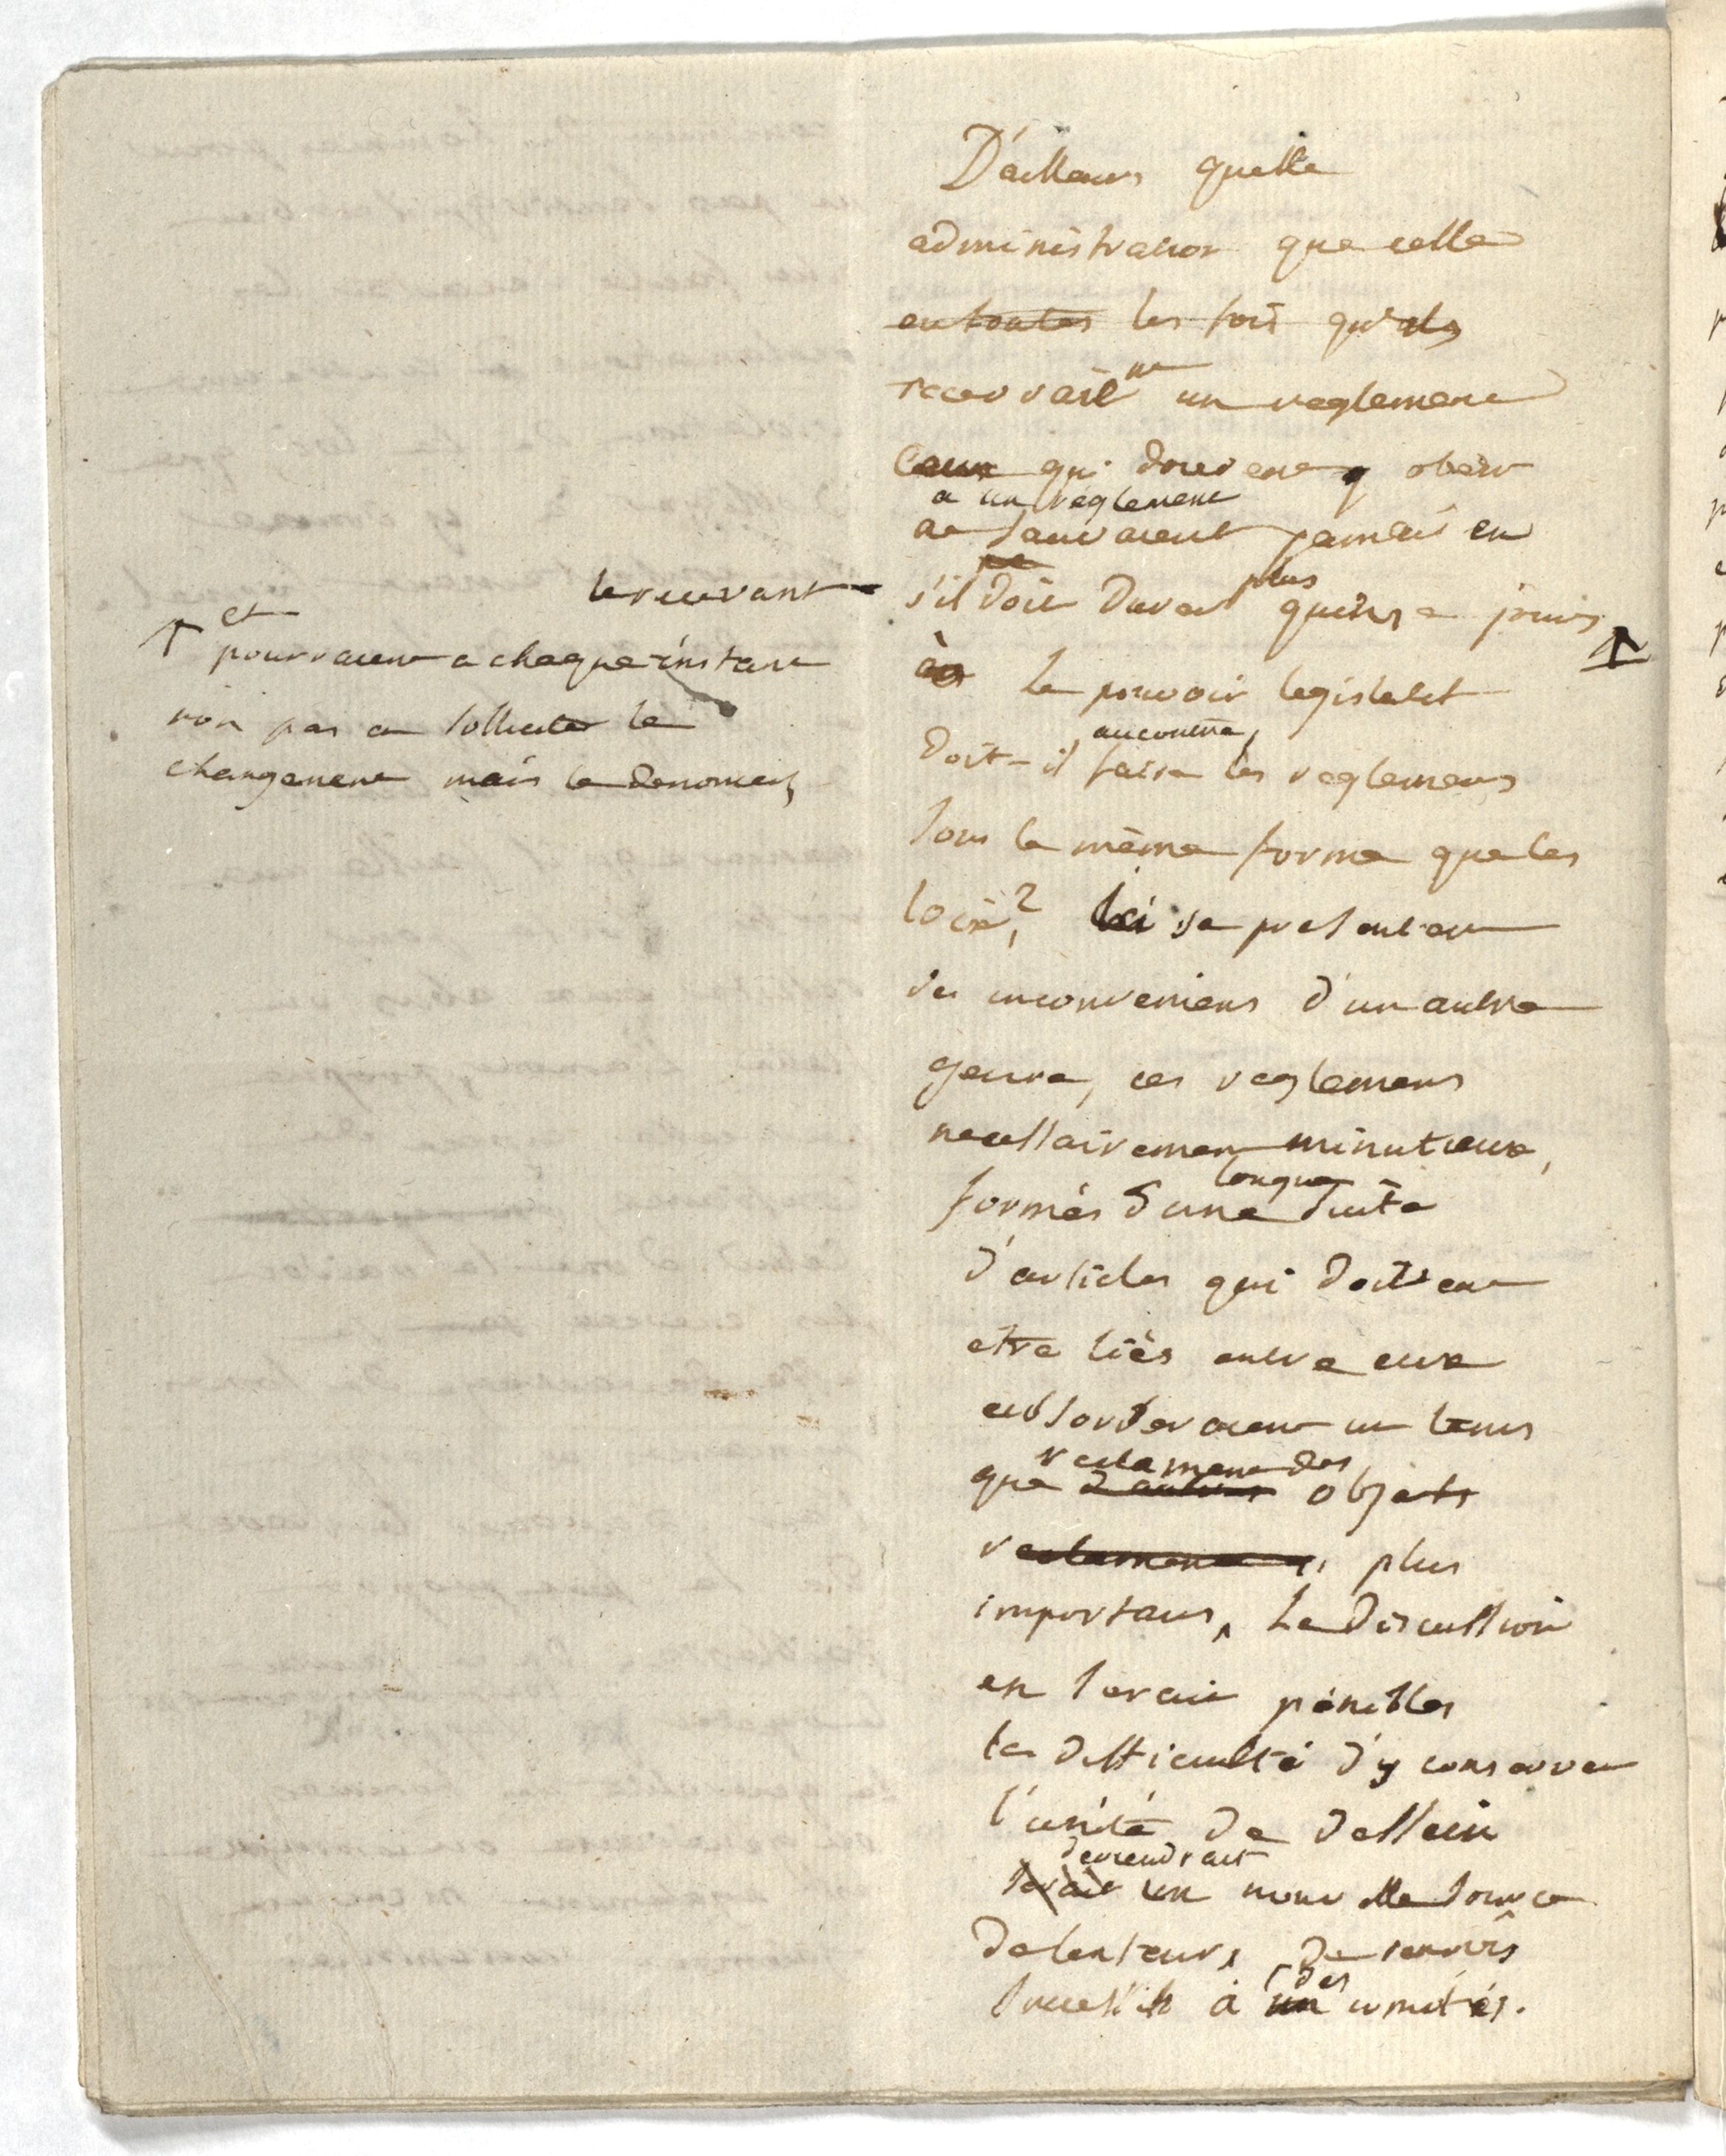 D'ailleurs quelle
administration que celle
ou toutes les fois qu'ils
recevrait un reglement
Ceux qui doivent y obeir
a un reglement
ne sauraient jamais en
le recevant s'il doit durer plus quinze jours
et
pourraient a chaque instant
non pas en solliciter le
changement mais le denoncer,
Le pouvoir legislatif
doit-il au contraire, faire les reglemens
sous la même forme que les
loix? Ici se presentent
des inconveniens d'un autre
genre, ces reglemens
necessairement minutieux,
formés d'une longue suite
d'articles qui doivent
etre liés entre eux
absorberaient un tems
que reclament des
d'autres objets
reclament plus
importans, La discussion
en serait penible
la difficulté d'y conserver
l'unité de dessein
deviendrait
serait un nouvelle source
de lenteurs, de renvois
successifs à un des comités.